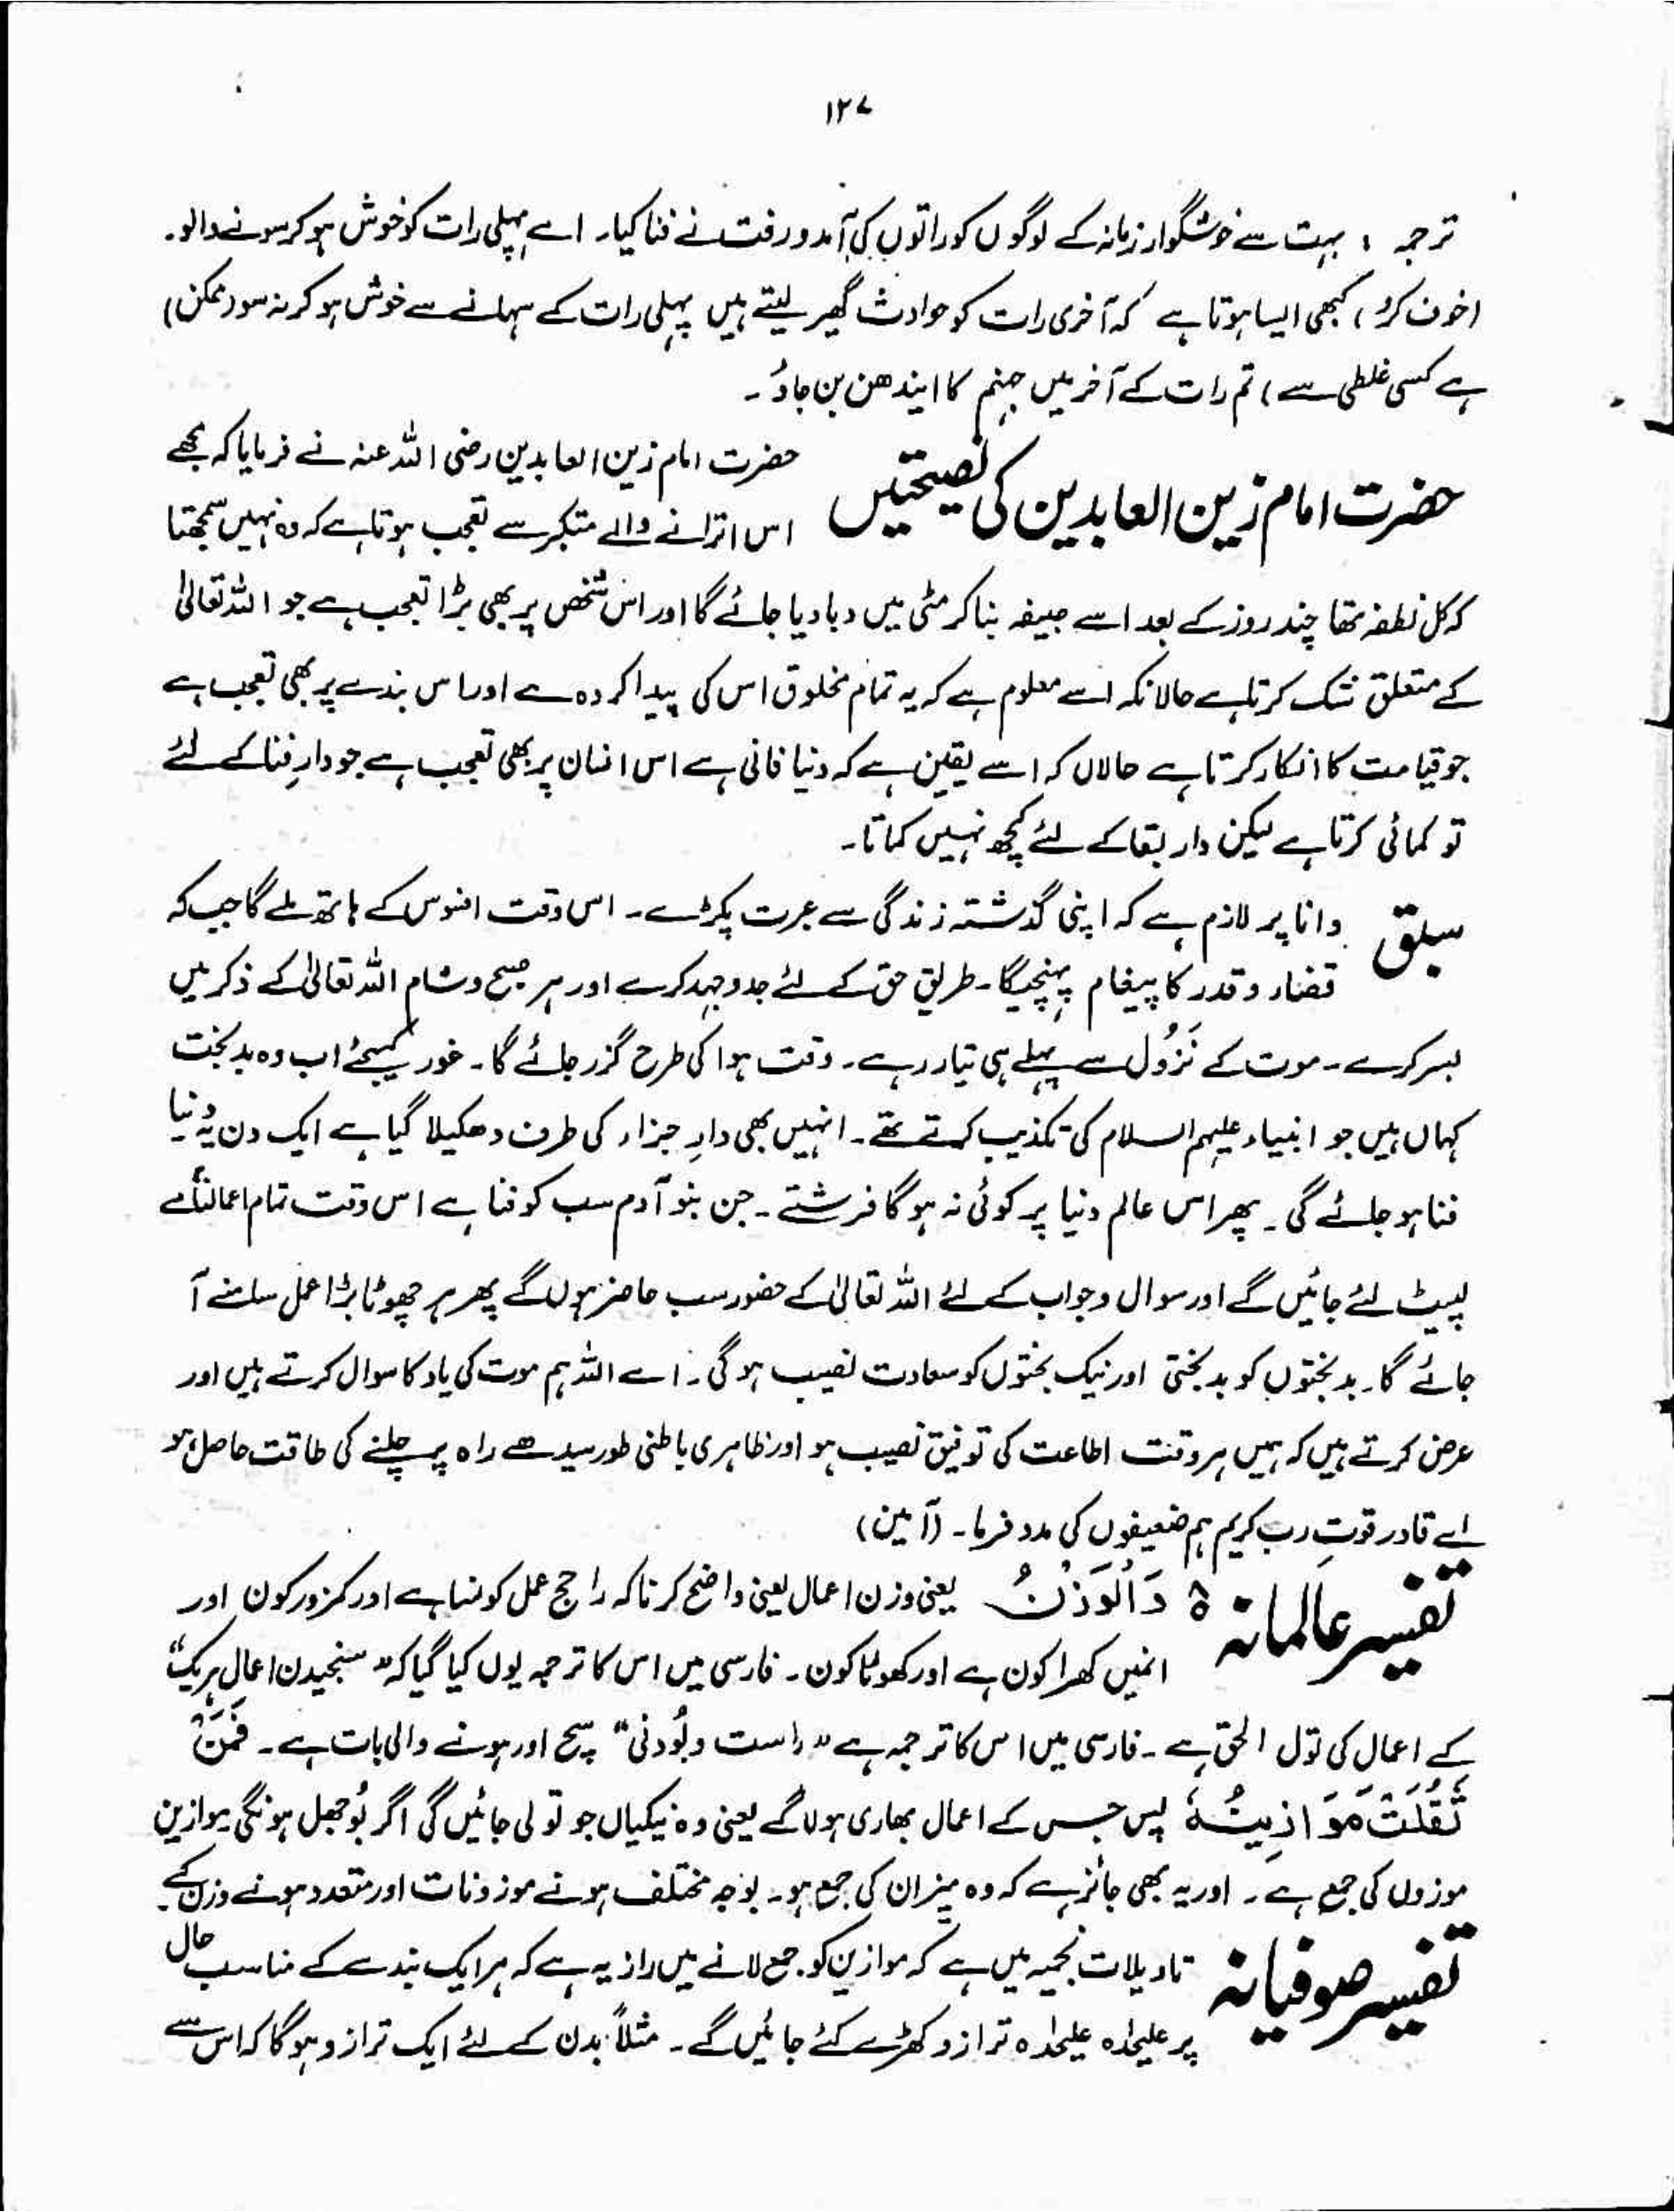 ۱۲۷
ترجمہ : بہت سے خوشگوار زمانہ کے لوگوں کو راتوں کی آمد و رفت نے فنا کیا۔ اے پہلی رات کو خوش ہو کر سونے والو۔
(خوف کرو) کبھی ایسا ہوتا ہے کہ آخری رات کو حوادث گھیر لیتے ہیں پہلی رات کے سہانے سے خوش ہو کر نہ سو (ممکن)
ہے کسی غلطی سے) تم رات کے آخر میں جہنم کا ایندھن بن جاؤ۔
حضرت امام زین العابدین کی نصیحتیں
حضرت امام زین العابدین رضی اللہ عنہ نے فرمایا کہ مجھے
اس اترانے والے متکبر سے تعجب ہوتا ہے کہ وہ نہیں سمجھتا
کہ کل نطفہ تھا چند روز کے بعد اسے جیفہ بنا کر مٹی میں دبا دیا جائے گا اور اس شخص پر بھی بڑا تعجب ہے جو اللہ تعالیٰ
کے متعلق شک کرتا ہے حالانکہ اسے معلوم ہے کہ یہ تمام مخلوق اس کی پیدا کردہ ہے اور اس بندے پر بھی تعجب ہے
جو قیامت کا انکار کرتا ہے حالاں کہ اسے یقین ہے کہ دنیا فانی ہے اس انسان پر بھی تعجب ہے جو دارِ فنا کے لئے
تو کمائی کرتا ہے لیکن دار بقا کے لئے کچھ نہیں کماتا۔
سبق
دانا پر لازم ہے کہ اپنی گذشتہ زندگی سے عبرت پکڑے۔ اس وقت افسوس کے ہاتھ ملے گا جب کہ
قضاء و قدر کا پیغام پہنچیگا۔ طریق حق کے لئے جدوجہد کرے اور ہر صبح و شام اللہ تعالیٰ کے ذکر میں
بسر کرے۔ موت کے نَزُول سے پہلے ہی تیار رہے۔ وقت ہوا کی طرح گزر جائے گا۔ غور کیجئے اب وہ بدبخت
کہاں ہیں جو انبیاء علیہم السلام کی تکذیب کرتے تھے۔ انہیں بھی دارِ جزاء کی طرف دھکیلا گیا ہے ایک دن یہ دنیا
فنا ہو جائے گی۔ پھر اس عالم دنیا پر کوئی نہ ہو گا فرشتے۔ جن بنو آدم سب کو فنا ہے اس وقت تمام اعمالنامے
لپیٹ لئے جائیں گے اور سوال و جواب کے لئے اللہ تعالیٰ کے حضور سب حاضر ہوں گے پھر ہر چھوٹا بڑا عمل سامنے آ
جائے گا۔ بدبختوں کو بدبختی اور نیک بختوں کو سعادت نصیب ہو گی۔ اے اللہ ہم موت کی یاد کا سوال کرتے ہیں اور
عرض کرتے ہیں کہ ہمیں ہر وقت اطاعت کی توفیق نصیب ہو اور ظاہری باطنی طور سیدھے راہ پر چلنے کی طاقت حاصل ہو
اے قادر قوتِ رب کریم ہم ضعیفوں کی مدد فرما۔ (آمین)
تفسیر عالمانہ
ۃ وَالْوَزْنُ یعنی وزن اعمال یعنی واضح کرنا کہ راجح عمل کونسا ہے اور کمزور کون اور
انمیں کھرا کون ہے اور کھوٹا کون۔ فارسی میں اس کا ترجمہ یوں کیا گیا کہ " سنجیدن اعمال ہریک"
کے اعمال کی تول الحق ہے۔ فارسی میں اس کا ترجمہ ہے "راست و بُودنی" سچ اور ہونے والی بات ہے۔ فَمَنْ
ثَقُلَتْ مَوَازِیْنُهٗ پس جس کے اعمال بھاری ہوں گے یعنی وہ نیکیاں جو تولی جائیں گی اگر بُوجھل ہونگی موازین
موزوں کی جمع ہے۔ اور یہ بھی جائز ہے کہ وہ میزان کی جمع ہو۔ بوجہ مختلف ہونے موزونات اور متعدد ہونے وزن کے۔
تفسیر صوفیانہ
تاویلات نجمیہ میں ہے کہ موازین کو جمع لانے میں راز یہ ہے کہ ہر ایک بندے کے مناسب حال
پر علیحدہ علیحدہ ترازو کھڑے کئے جائیں گے۔ مثلاً بدن کے لئے ایک ترازو ہو گا کہ اس سے